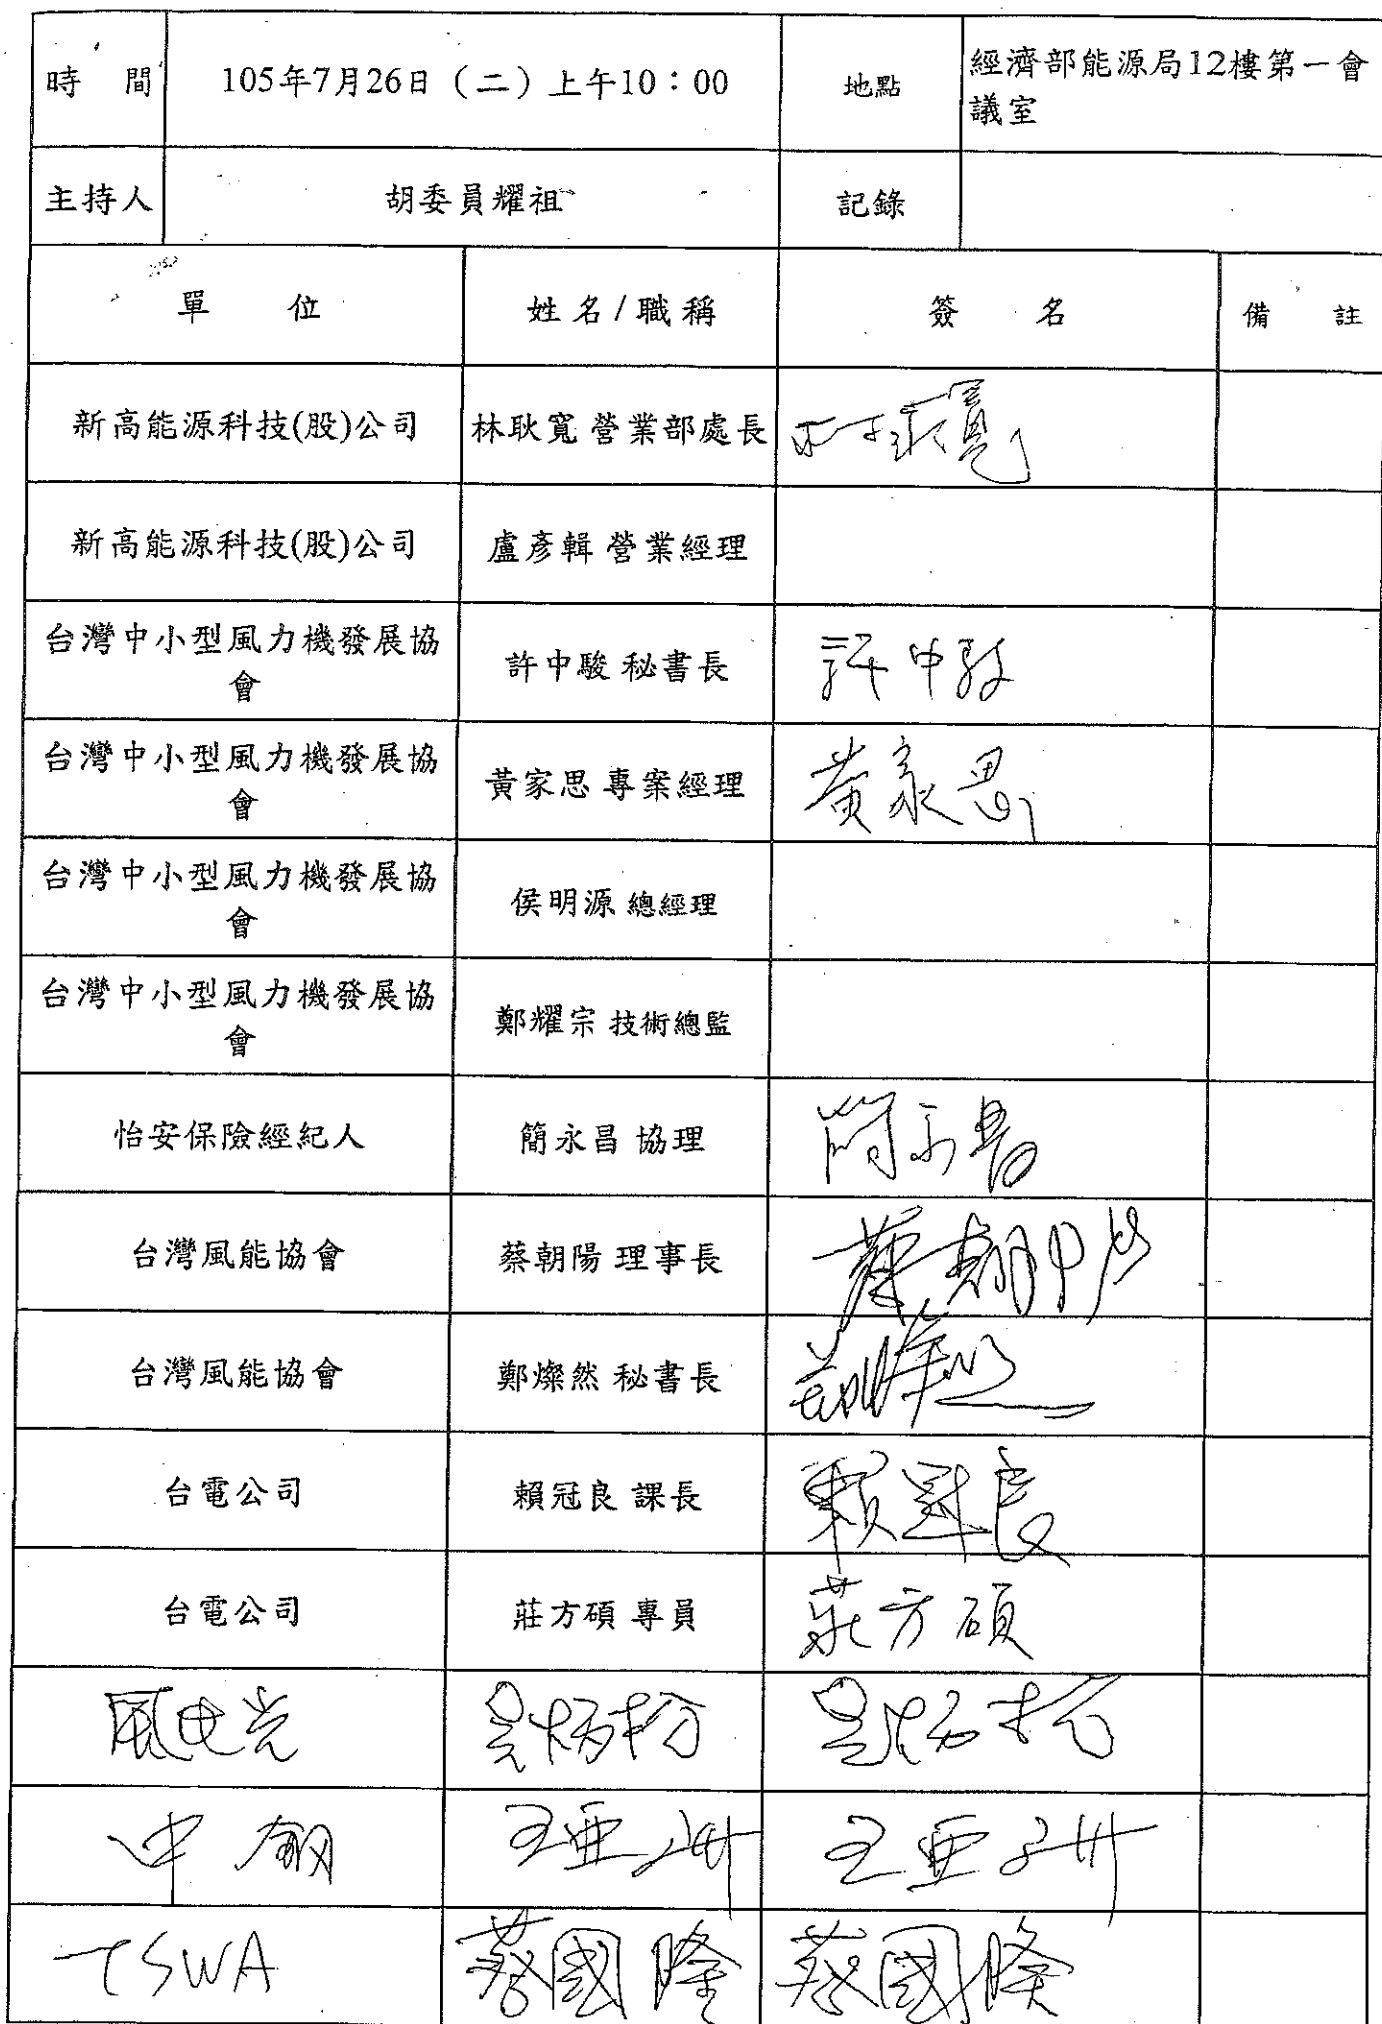 時 間 105年7月26日（二）上午10：00 地點 經濟部能源局12樓第一會
議室
主持人 胡委員耀祖 記錄
單 位 姓名/職稱 簽 名 備 註
新高能源科技(股)公司 林耿寬 營業部處長 林耿寬
新高能源科技(股)公司 盧彥輯 營業經理
台灣中小型風力機發展協
會 許中駿 秘書長 許中駿
台灣中小型風力機發展協
會 黃家思 專案經理 黃家思
台灣中小型風力機發展協
會 侯明源 總經理
台灣中小型風力機發展協
會 鄭耀宗 技術總監
怡安保險經紀人 簡永昌 協理 簡永昌
台灣風能協會 蔡朝陽 理事長 蔡朝陽
台灣風能協會 鄭燦然 秘書長 鄭燦然
台電公司 賴冠良 課長 賴冠良
台電公司 莊方碩 專員 莊方碩
風电光
中鋼 王亜洲 王亜洲
TSWA 蔡國隆 蔡國隆